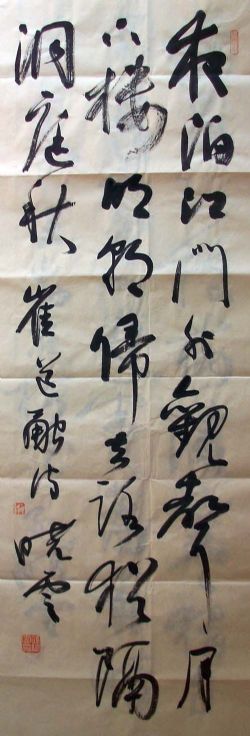 夜泊江門外歡聲月
里樓明朝歸去路猶隔
洞庭秋 崔道融詩 曉雲